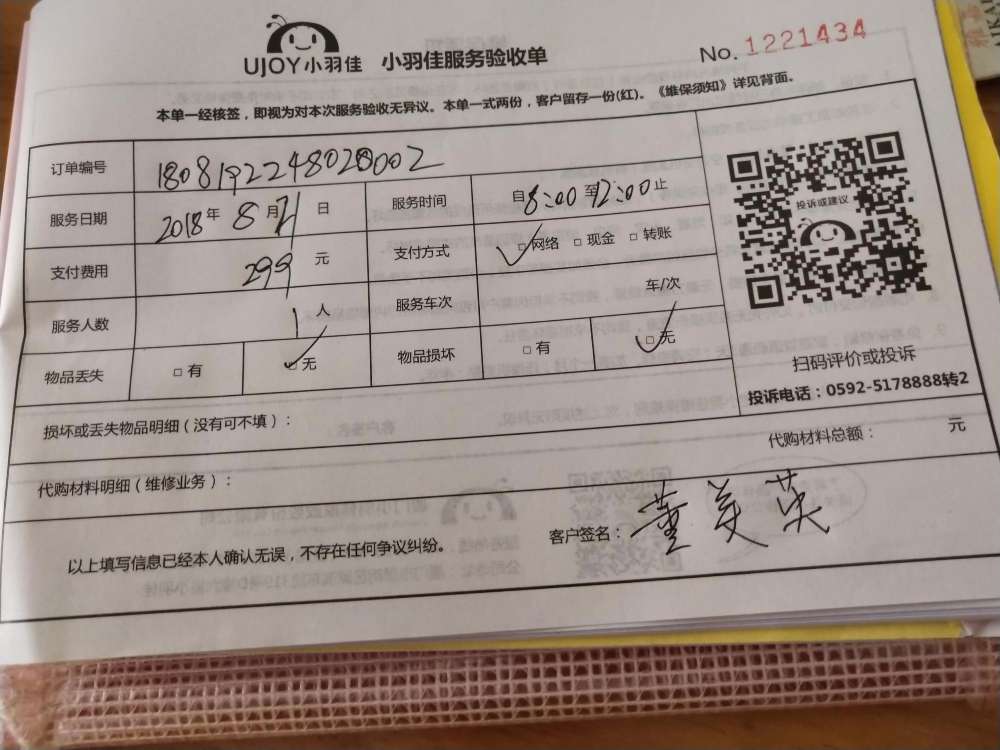 UJOY小羽佳 小羽佳服务验收单 No. 1221434
本单一经核签，即视为对本次服务验收无异议。本单一式两份，客户留存一份(红)。《维保须知》详见背面。
订单编号 1808192248028002
服务日期 2018年8月21日 服务时间 自8:00至12:00止
支付费用 299元 支付方式 ✓□网络 □现金 □转账
服务人数 1人 服务车次 车/次
物品丢失 □有 ✓□无 物品损坏 □有 ✓□无
投诉或建议
扫码评价或投诉
投诉电话：0592-5178888转2
损坏或丢失物品明细（没有可不填）：
代购材料明细（维修业务）： 代购材料总额： 元
以上填写信息已经本人确认无误，不存在任何争议纠纷。 客户签名：董美英